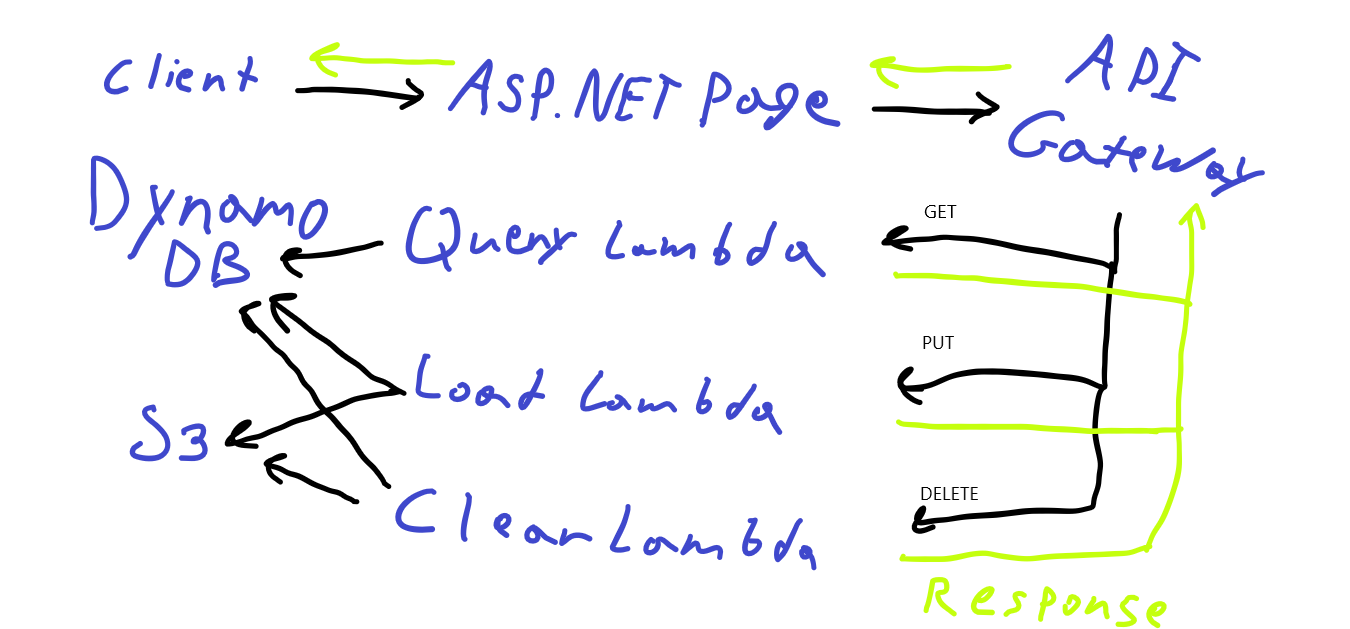 Client
ASP.NET Page
API
Gateway
Dynamo
DB
Query Lambda
GET
Load Lambda
PUT
S3
Clear Lambda
DELETE
Response